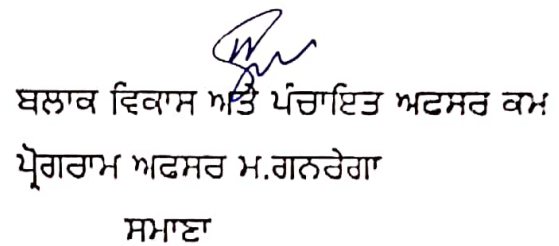 ਬਲਾਕ ਵਿਕਾਸ ਅਤੇ ਪੰਚਾਇਤ ਅਫਸਰ ਕਮ
ਪ੍ਰੋਗਰਾਮ ਅਫਸਰ ਮ.ਗਨਰੇਗਾ
ਸਮਾਣਾ